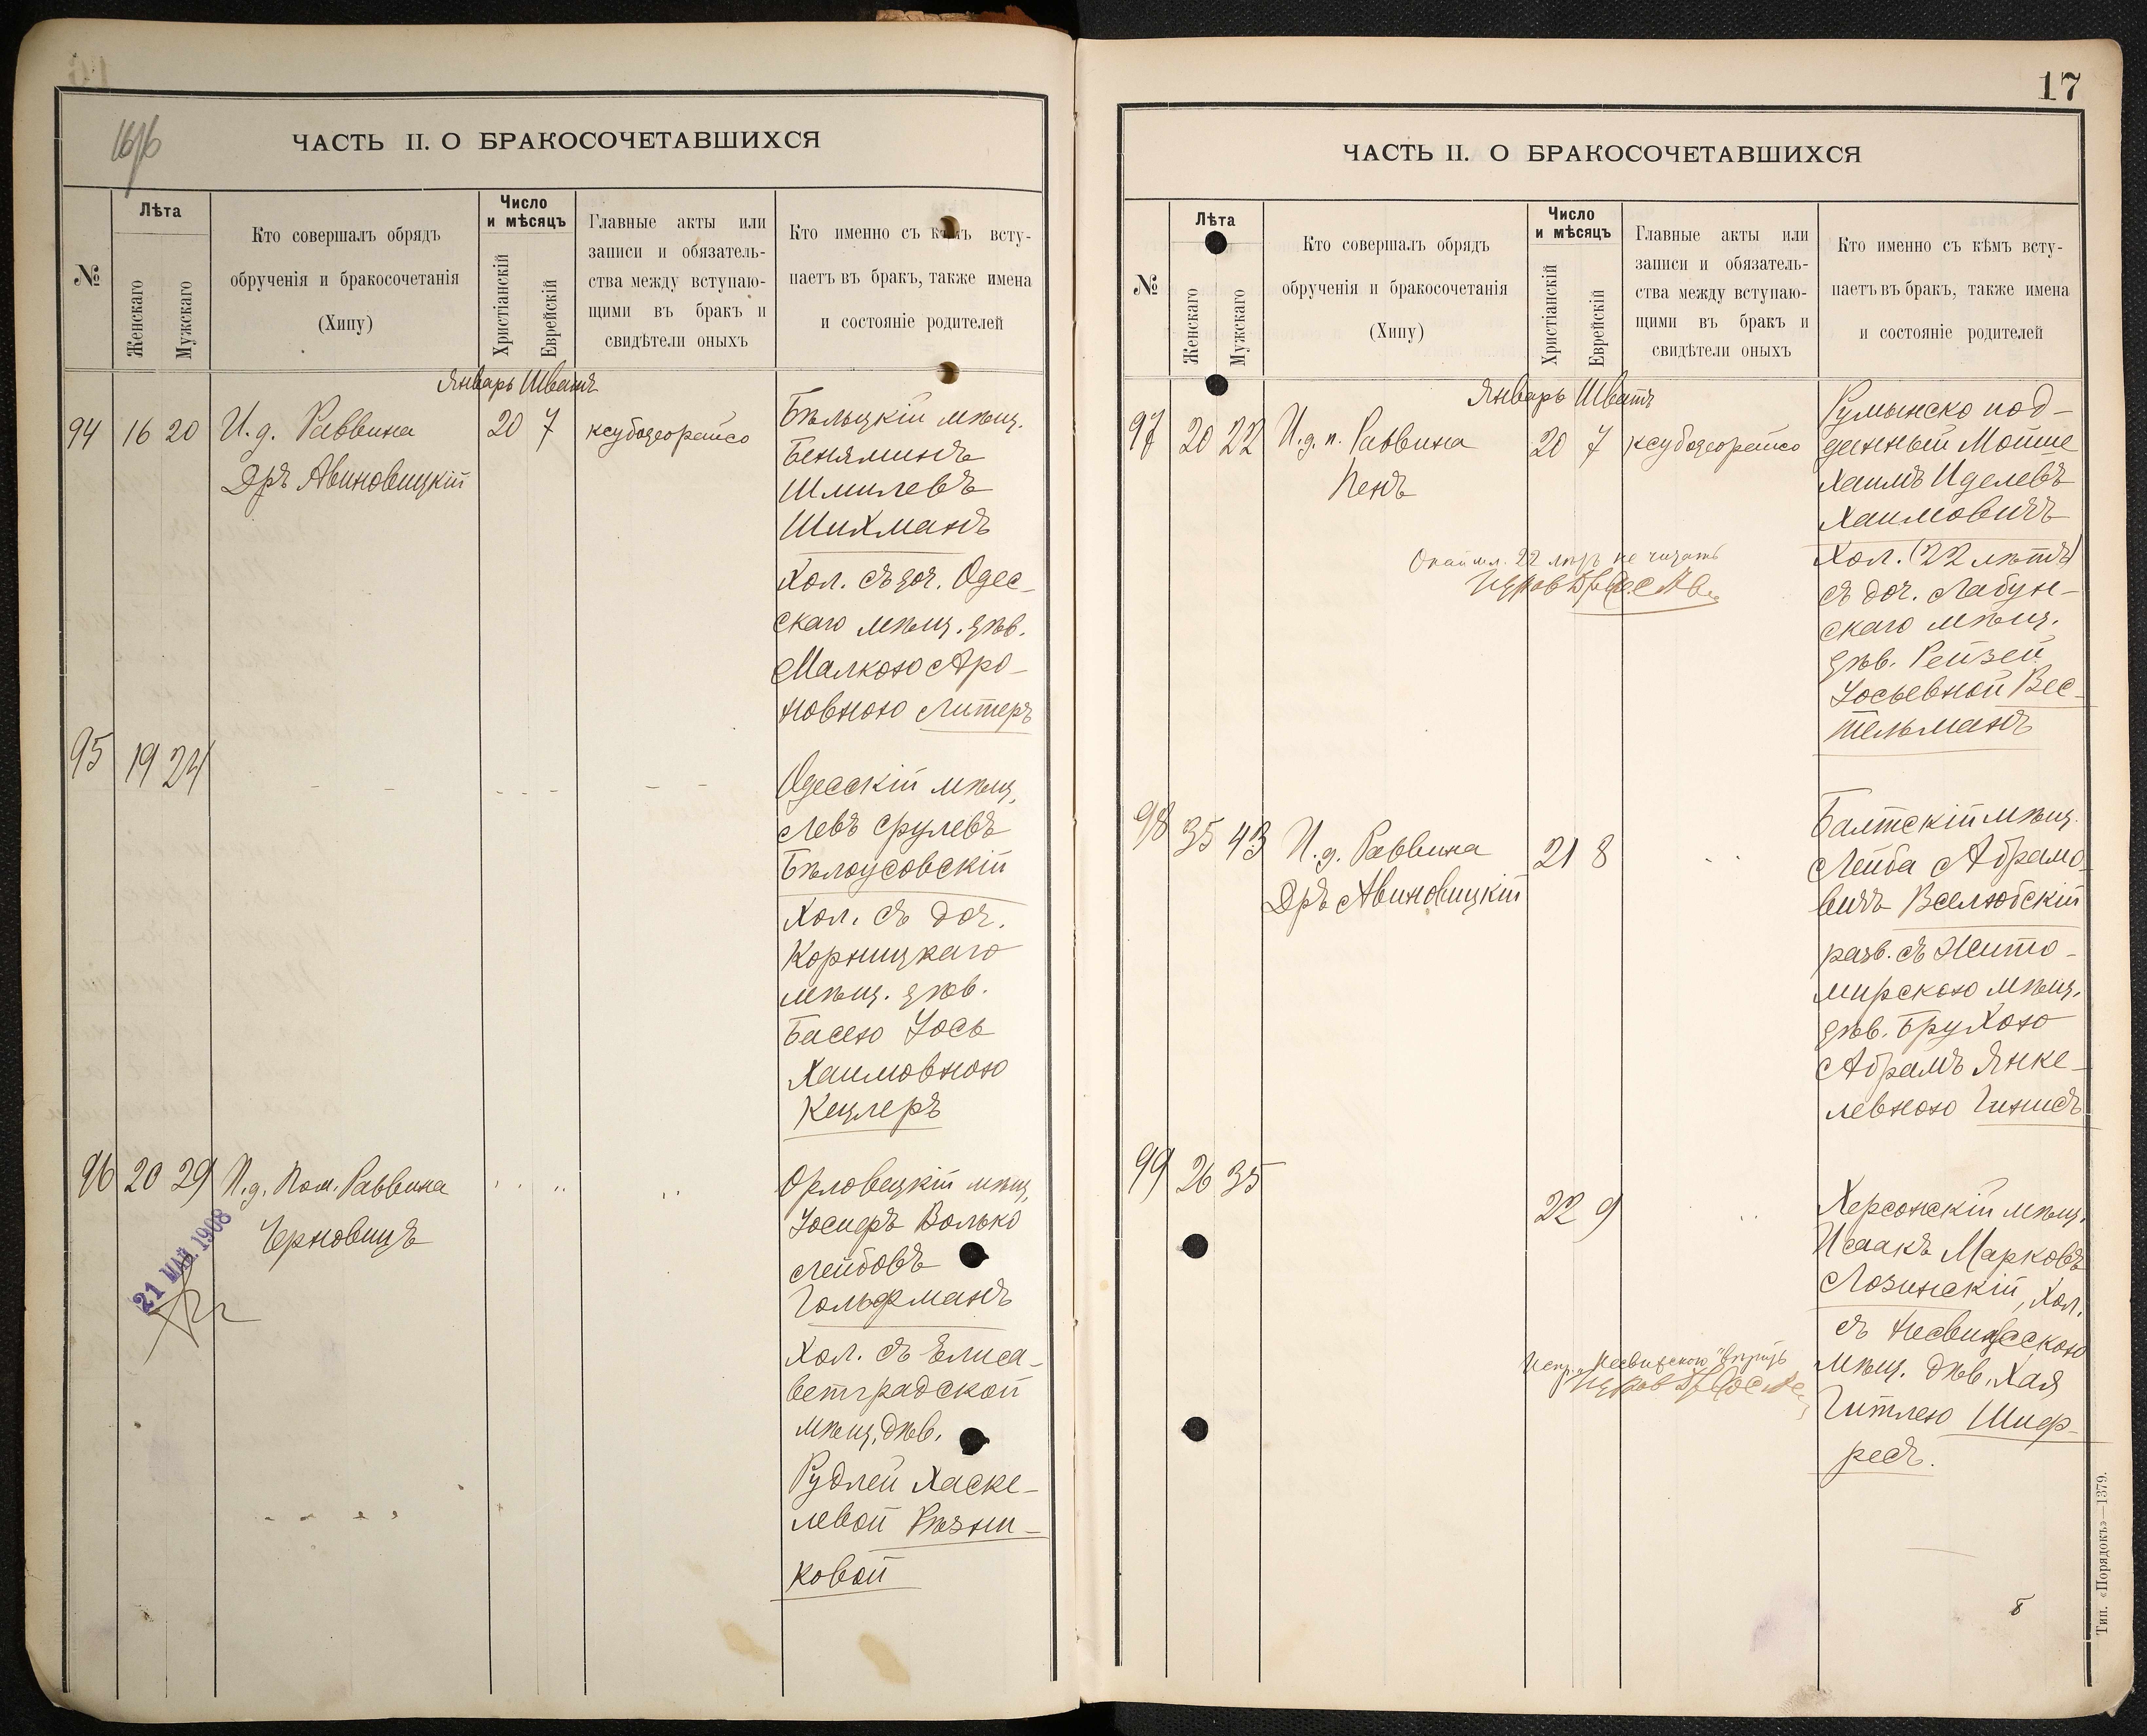 ЧАСТЬ II. О БРАКОСОЧЕТАВШИХСЯ
№
Лѣта
Женскаго
Мужскаго
Кто совершалъ обрядъ
обрученія и бракосочетанія
(Хипу)
Число
и мѣсяцъ
Христіанскій
Еврейскій
Главные акты или
записи и обязатель-
ства между вступаю-
щими въ бракъ и
свидѣтели оныхъ
Кто именно съ кѣмъ всту-
паетъ въ бракъ, также имена
и состояніе родителей
Январь Шватъ
94 16 20 И. д. Раввина 20 7
Дръ Авиновицкій
Бѣльцкій мѣщ.
Беняминъ
Шмилевъ
Шихманъ
Хол. съ доч. Одес-
скаго мѣщ. дѣв.
Малкою Аро-
новною Литеръ
95 19 24
Одесскій мѣщ.
Левъ Срулевъ
Бѣлоусовскій
Хол. съ доч.
Корницкаго
мѣщ. дѣв.
Басею Іось
Хаимовною
Кецлеръ
96 20 29 И. д. Пом. Раввина
Черновицъ
21 МАЙ 1908
Орловецкій мѣщ.
Іосифъ Волько
Лейбовъ
Гольфманъ
Хол. съ Елиса-
ветградской
мѣщ. дѣв.
Рудлей Хаске-
левой Рѣзни-
ковой
17
ЧАСТЬ II. О БРАКОСОЧЕТАВШИХСЯ
№
Лѣта
Женскаго
Мужскаго
Кто совершалъ обрядъ
обрученія и бракосочетанія
(Хипу)
Число
и мѣсяцъ
Христіанскій
Еврейскій
Главные акты или
записи и обязатель-
ства между вступаю-
щими въ бракъ и
свидѣтели оныхъ
Кто именно съ кѣмъ всту-
паетъ въ бракъ, также имена
и состояніе родителей
Январь Шватъ
97 20 22 И. д. п. Раввина 20 7
Пенъ
Румынско под-
данный Мойше
Хаимъ Иделевъ
Хаимовичъ
Хол. (22 лѣтъ)
съ доч. Лабун-
скаго мѣщ.
дѣв. Рейзей
Іосьевной Вес-
тельманъ
22 лѣтъ не читать
98 35 43 И. д. Раввина 21 8
Дръ Авиновицкій
Балтскій мѣщ.
Лейба Абрамо-
вичъ Вселюбскій
разв. съ Жито-
мирскою мѣщ.
дѣв. Брухою
Абрамъ Янке-
левною Гинисъ
99 26 35 22 9
Херсонскій мѣщ.
Исаакъ Марковъ
Лозинскій, Хол.
съ Несвижскою
мѣщ. дѣв. Хая
Гитлею Шиф-
ресъ.
Тип. «Порядокъ»—1379.